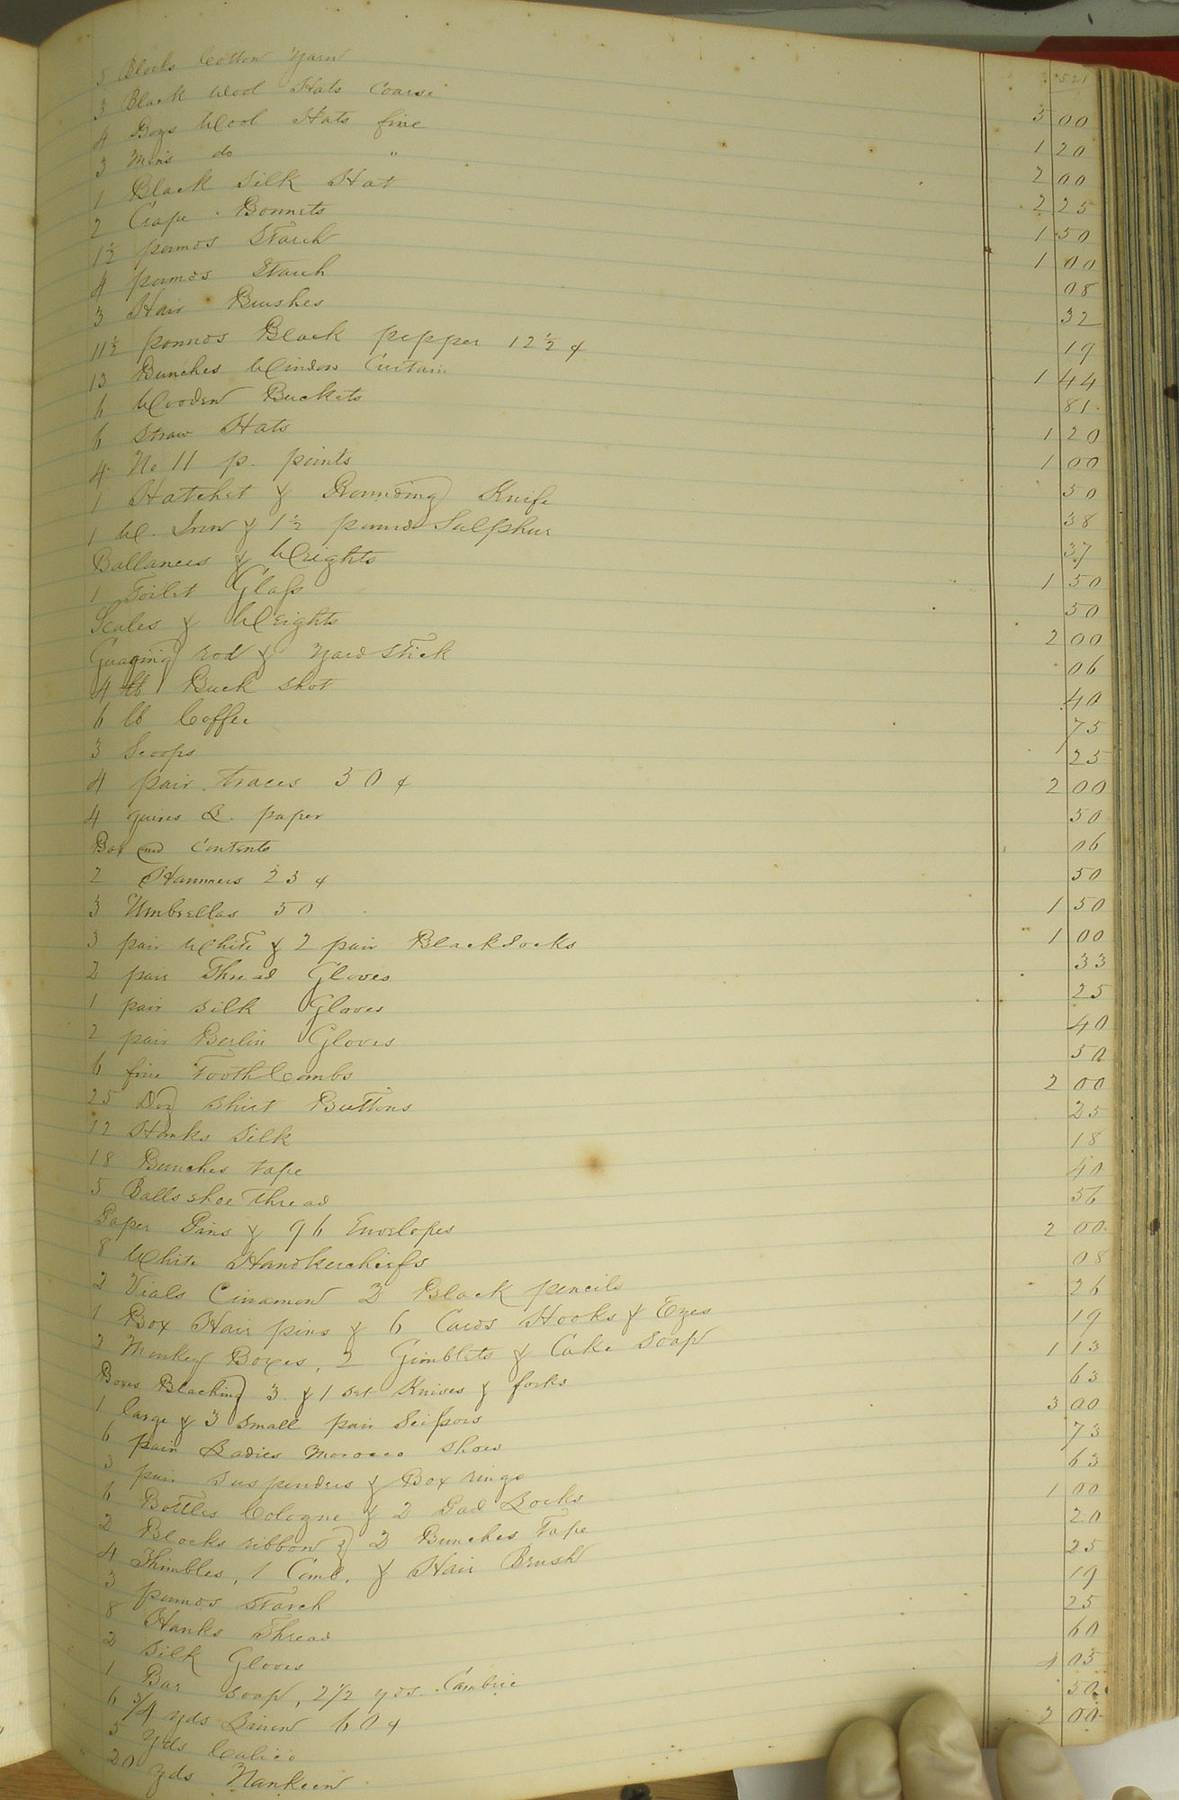 521
5 Blocks Cotton Yarn 3 00
3 Black Wool Hats Coarse 1 20
4 Boys Wool Hats fine 2 00
3 Mens do " 2 25
1 Black Silk Hat 1 50
2 Crape Bonnets 1 00
1½ pounds Starch 08
4 pounds Starch 32
3 Hair Brushes 19
11½ pounds Black pepper 12½ ¢ 1 44
13 Bunches Window Curtain 81
6 Wooden Buckets 1 20
6 Straw Hats 1 00
4 No 11 p. points 50
1 Hatchet & Rounding Knife 38
1 W. Iron & 1½ pound Sulphur 37
Ballances & Weights 1 50
1 Toilet Glass 50
Scales & Weights 2 00
Guaging rod & yard stick 06
4 lb Buck shot 40
6 lb Coffee 75
3 Scoops 25
4 pair traces 50 ¢ 2 00
4 quires L. paper 50
Box and Contents 06
2 Hammers 25 ¢ 50
3 Umbrellas 50 1 50
3 pair White & 2 pair Black Socks 1 00
2 pair Thread Gloves 33
1 pair silk Gloves 25
2 pair Berlin Gloves 40
6 fine Tooth Combs 50
25 Doz Shirt Buttons 2 00
12 Hanks Silk 25
18 Bunches tape 18
5 Balls shoe thread 40
Paper Pins & 96 Envelopes 56
8 White Handkerchiefs 2 00
2 Vials Cinamon 2 Black pencils 08
1 Box Hair pins & 6 Cards Hooks & Eyes 26
2 Monkey Boxes, 2 Gimblets & Cake Soap 19
Boxes Blacking 3 & 1 set Knives & forks 1 13
1 large & 3 small pair Scissors 63
6 pair Ladies Morocco Shoes 3 00
3 pair Suspenders & Box rings 73
6 Bottles Cologne & 2 Pad Locks 63
2 Blocks ribbon & 2 Bunches Tape 1 00
4 Thimbles, 1 Comb, & Hair Brush 20
3 pounds Starch 25
8 Hanks Thread 19
2 Silk Gloves 25
1 Bar Soap, 2½ yds. Cambric 60
6 3/4 yds Linen 60 ¢ 4 05
5 yds Calico 50
20 yds Nankeen 2 00